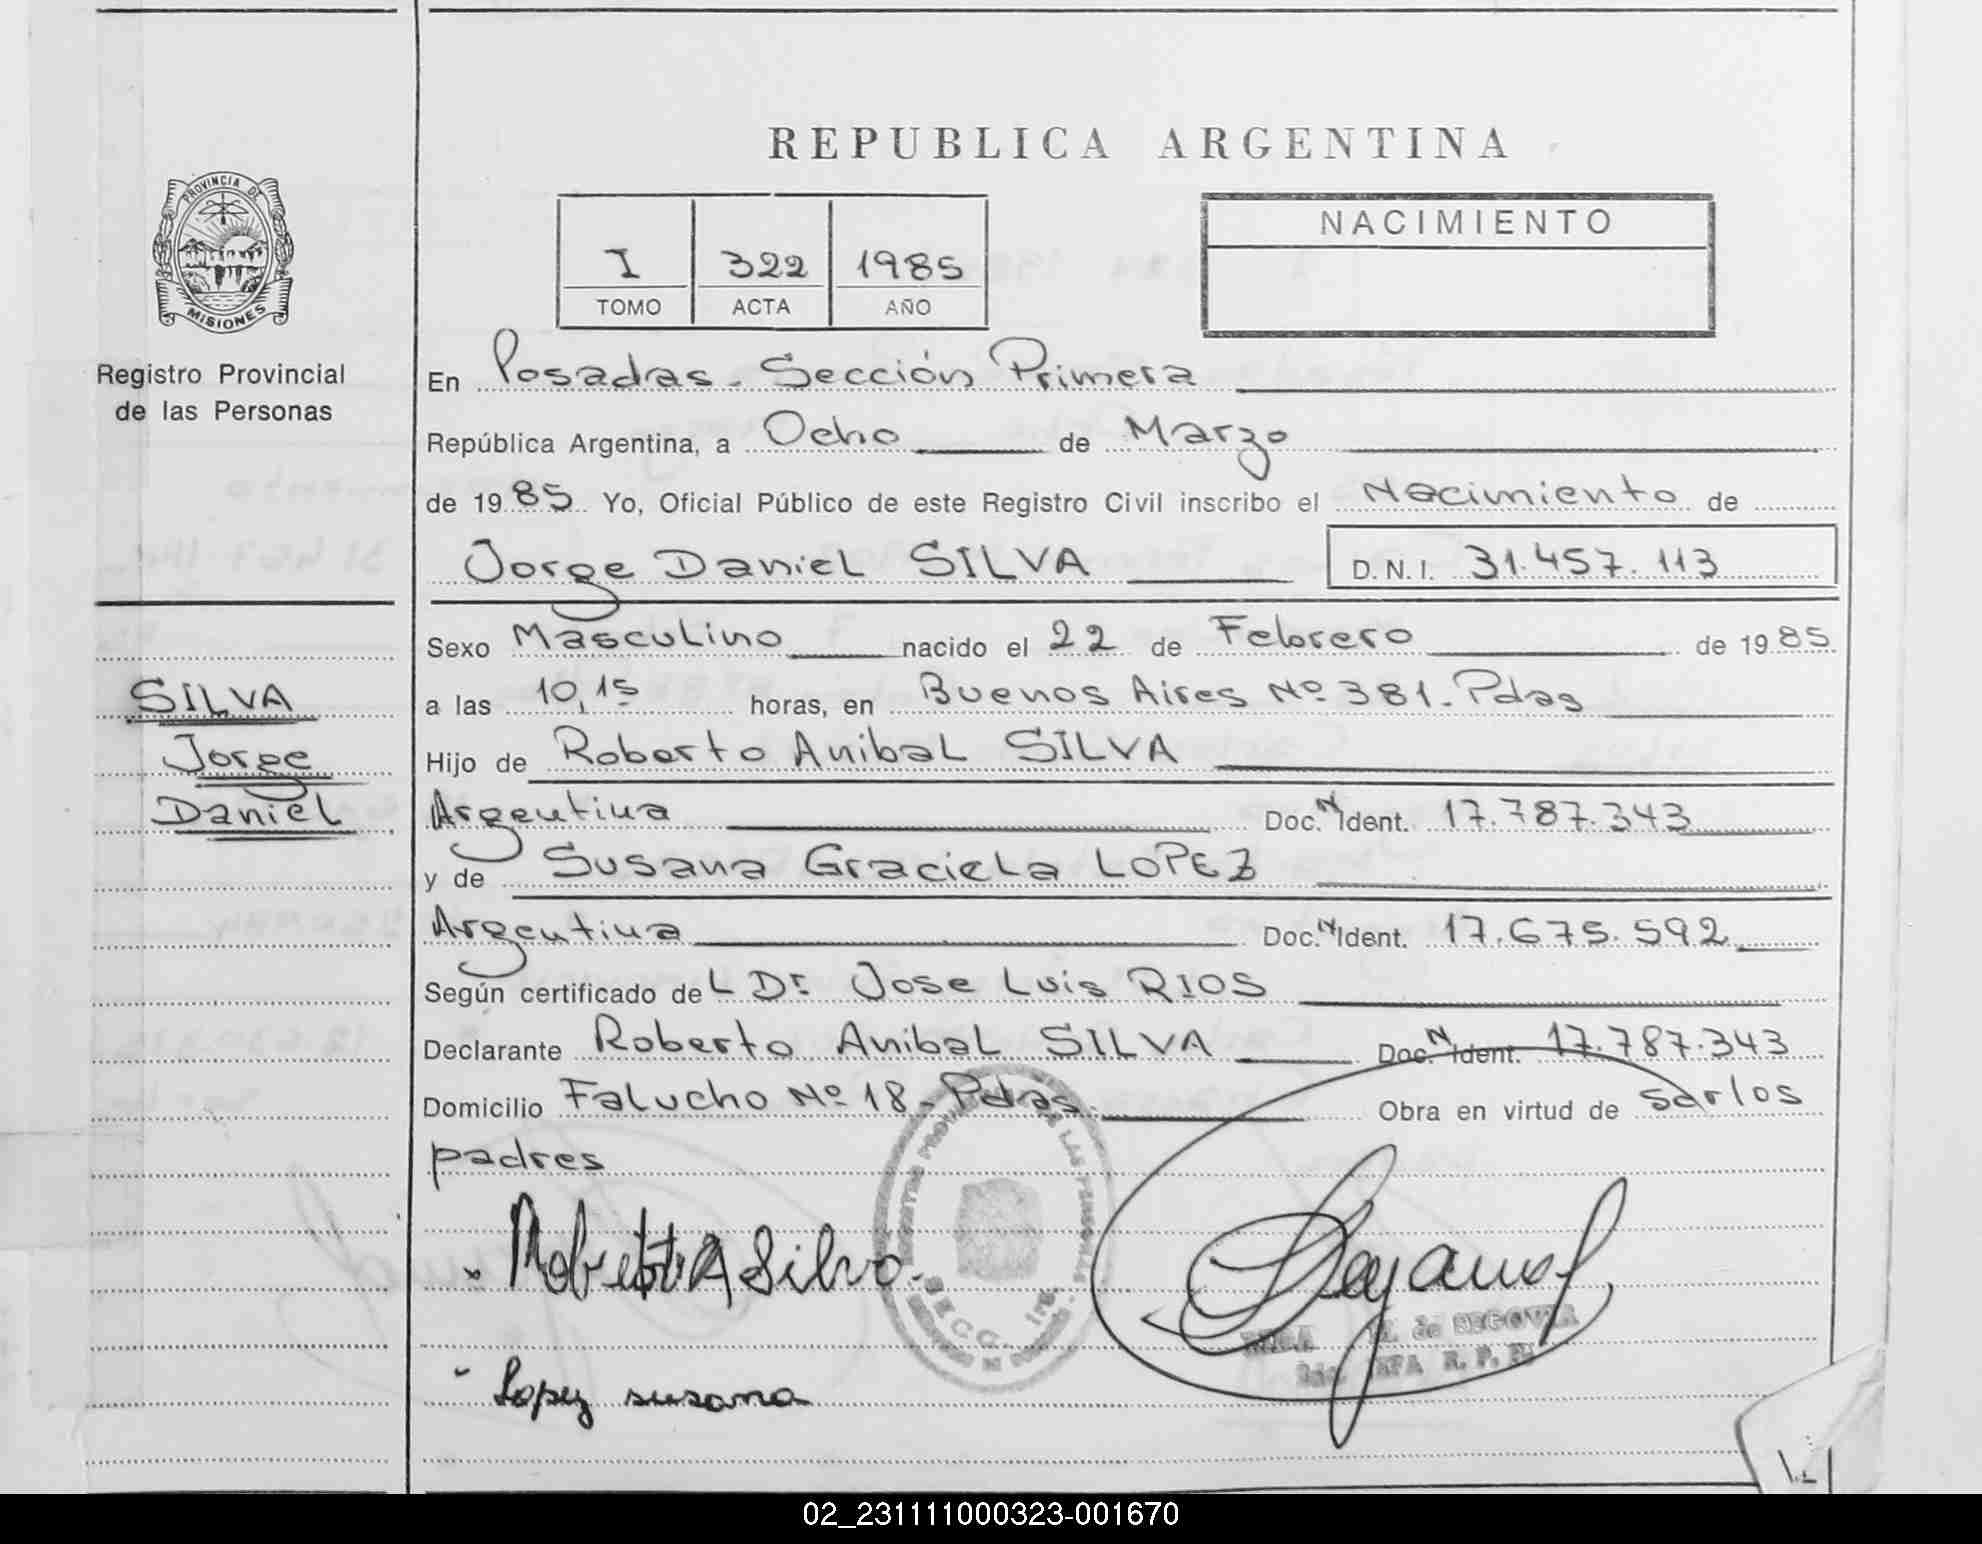 REPUBLICA ARGENTINA
PROVINCIA DE
MISIONES
Registro Provincial
de las Personas
I 322 1985
TOMO ACTA AÑO
NACIMIENTO
En Posadas. Sección Primera
República Argentina, a Ocho de Marzo
de 1985 Yo, Oficial Público de este Registro Civil inscribo el Nacimiento de
Jorge Daniel SILVA D.N.I. 31.457.113
Sexo Masculino nacido el 22 de Febrero de 1985
SILVA
a las 10,15 horas, en Buenos Aires Nº 381. Pdas
Jorge
Hijo de Roberto Anibal SILVA
Daniel
Argentina Doc. N Ident. 17.787.343
y de Susana Graciela LOPEZ
Argentina Doc. N Ident. 17.675.592
Según certificado del Dr. Jose Luis RIOS
Declarante Roberto Anibal SILVA Doc. N Ident. 17.787.343
Domicilio Falucho Nº 18 - Pdas. Obra en virtud de serlos
padres
Robert A Silva
SECC. 1ra.
de SEGOVIA
R. P.
Lopez susana
02_231111000323-001670